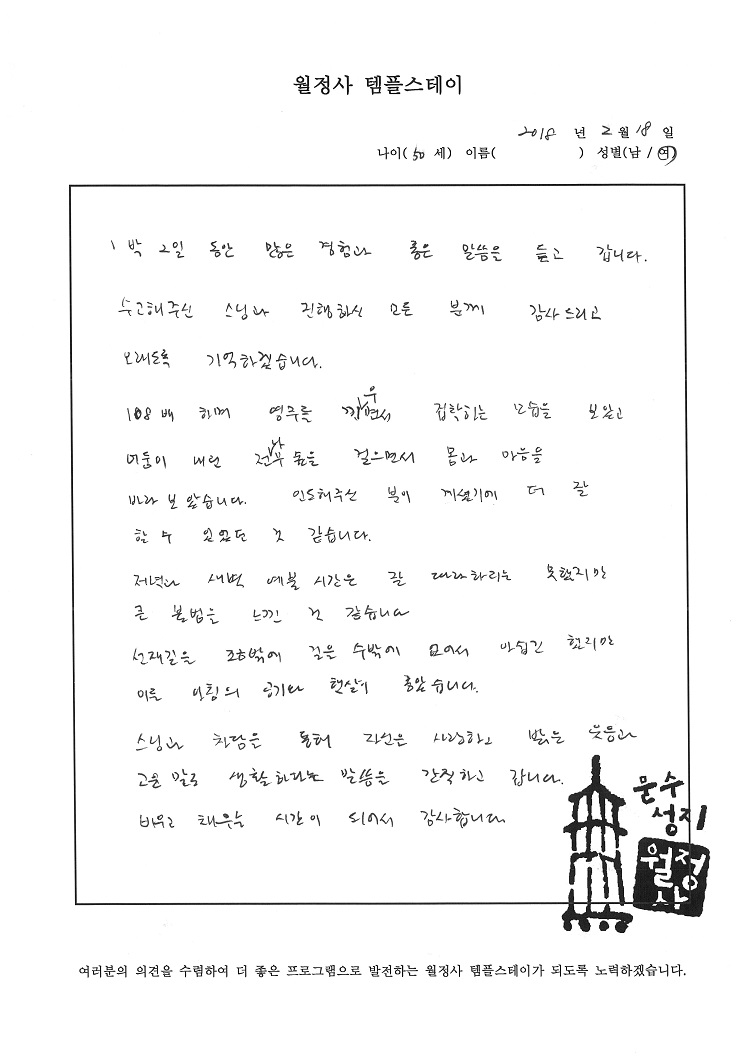 월정사 템플스테이
2018 년 2 월 18 일
나이( 50 세) 이름( ) 성별(남 / 여)
1박 2일 동안 많은 경험과 좋은 말씀을 듣고 갑니다.
수고해주신 스님과 진행하신 모든 분께 감사드리고
오래도록 기억하겠습니다.
108배 하며 염주를 끼우면서 집착하는 모습을 보았고
어둠이 내린 전나무 숲을 걸으면서 몸과 마음을
바라 보았습니다. 인도해주신 분이 계셨기에 더 잘
할 수 있었던 것 같습니다.
저녁과 새벽 예불 시간은 잘 따라하지는 못했지만
큰 불법을 느낀 것 같습니다
선재길은 조금밖에 걸을 수밖에 없어서 아쉽긴 했지만
이른 아침의 공기와 햇살이 좋았습니다.
스님과 차담을 통해 자신을 사랑하고 밝은 웃음과
고운 말로 생활하라는 말씀을 간직하고 갑니다.
비우고 채우는 시간이 되어서 감사합니다
문수
성지
월정
사
여러분의 의견을 수렴하여 더 좋은 프로그램으로 발전하는 월정사 템플스테이가 되도록 노력하겠습니다.